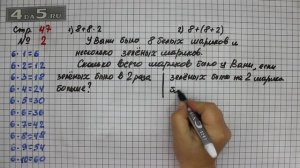 4DA5.RU
Стр 47
№ 2
1) 8+8·2
2) 8+(8+2)
У Вани было 8 белых шариков и
несколько зелёных шариков.
Сколько всего шариков было у Вани, если
зелёных было в 2 раза
больше?
зелёных было на 2 шарика
6·1=6
6·2=12
6·3=18
6·4=24
6·5=30
6·6=36
6·7=42
6·8=48
6·9=54
6·10=60